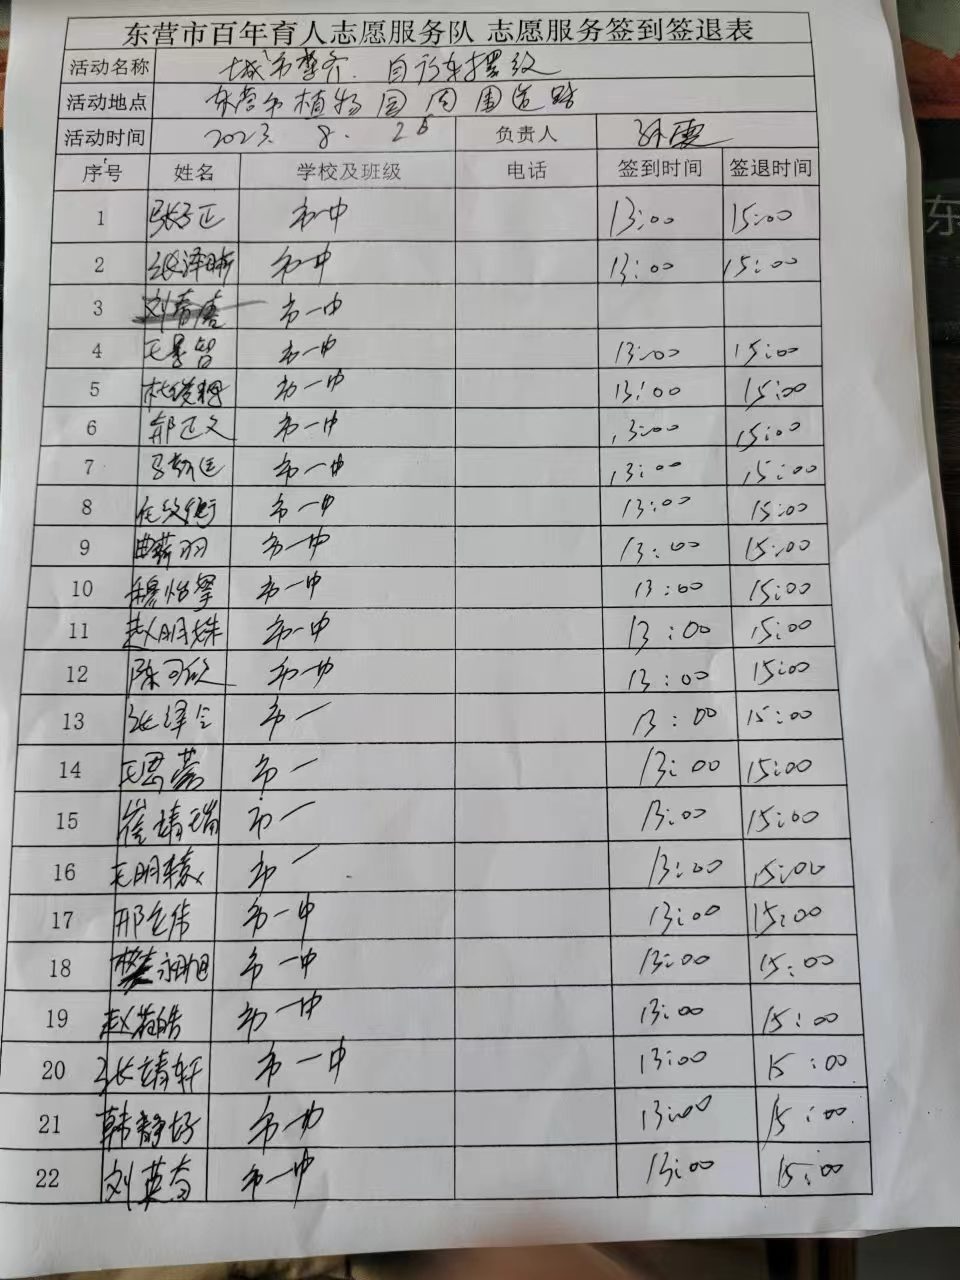 东营市百年育人志愿服务队 志愿服务签到签退表
活动名称 城市整齐. 自行车摆放
活动地点 东营市植物园周围道路
活动时间 2023. 8. 26 负责人
序号 姓名 学校及班级 电话 签到时间 签退时间
1 张子正 市一中 13:00 15:00
2 张泽昕 市一中 13:00 15:00
3 市一中
4 王景智 市一中 13:00 15:00
5 市一中 13:00 15:00
6 郝正文 市一中 13:00 15:00
7 市一中 13:00 15:00
8 市一中 13:00 15:00
9 曲蔚羽 市一中 13:00 15:00
10 穆怡擎 市一中 13:00 15:00
11 赵明姝 市一中 13:00 15:00
12 陈可欣 市一中 13:00 15:00
13 张泽 市一 13:00 15:00
14 王思蒙 市一 13:00 15:00
15 崔靖瑞 市一 13:00 15:00
16 王明 市一 13:00 15:00
17 邢 伟 市一中 13:00 15:00
18 市一中 13:00 15:00
19 赵 皓 市一中 13:00 15:00
20 张靖轩 市一中 13:00 15:00
21 韩静好 市一中 13:00 15:00
22 刘英奇 市一中 13:00 15:00
东